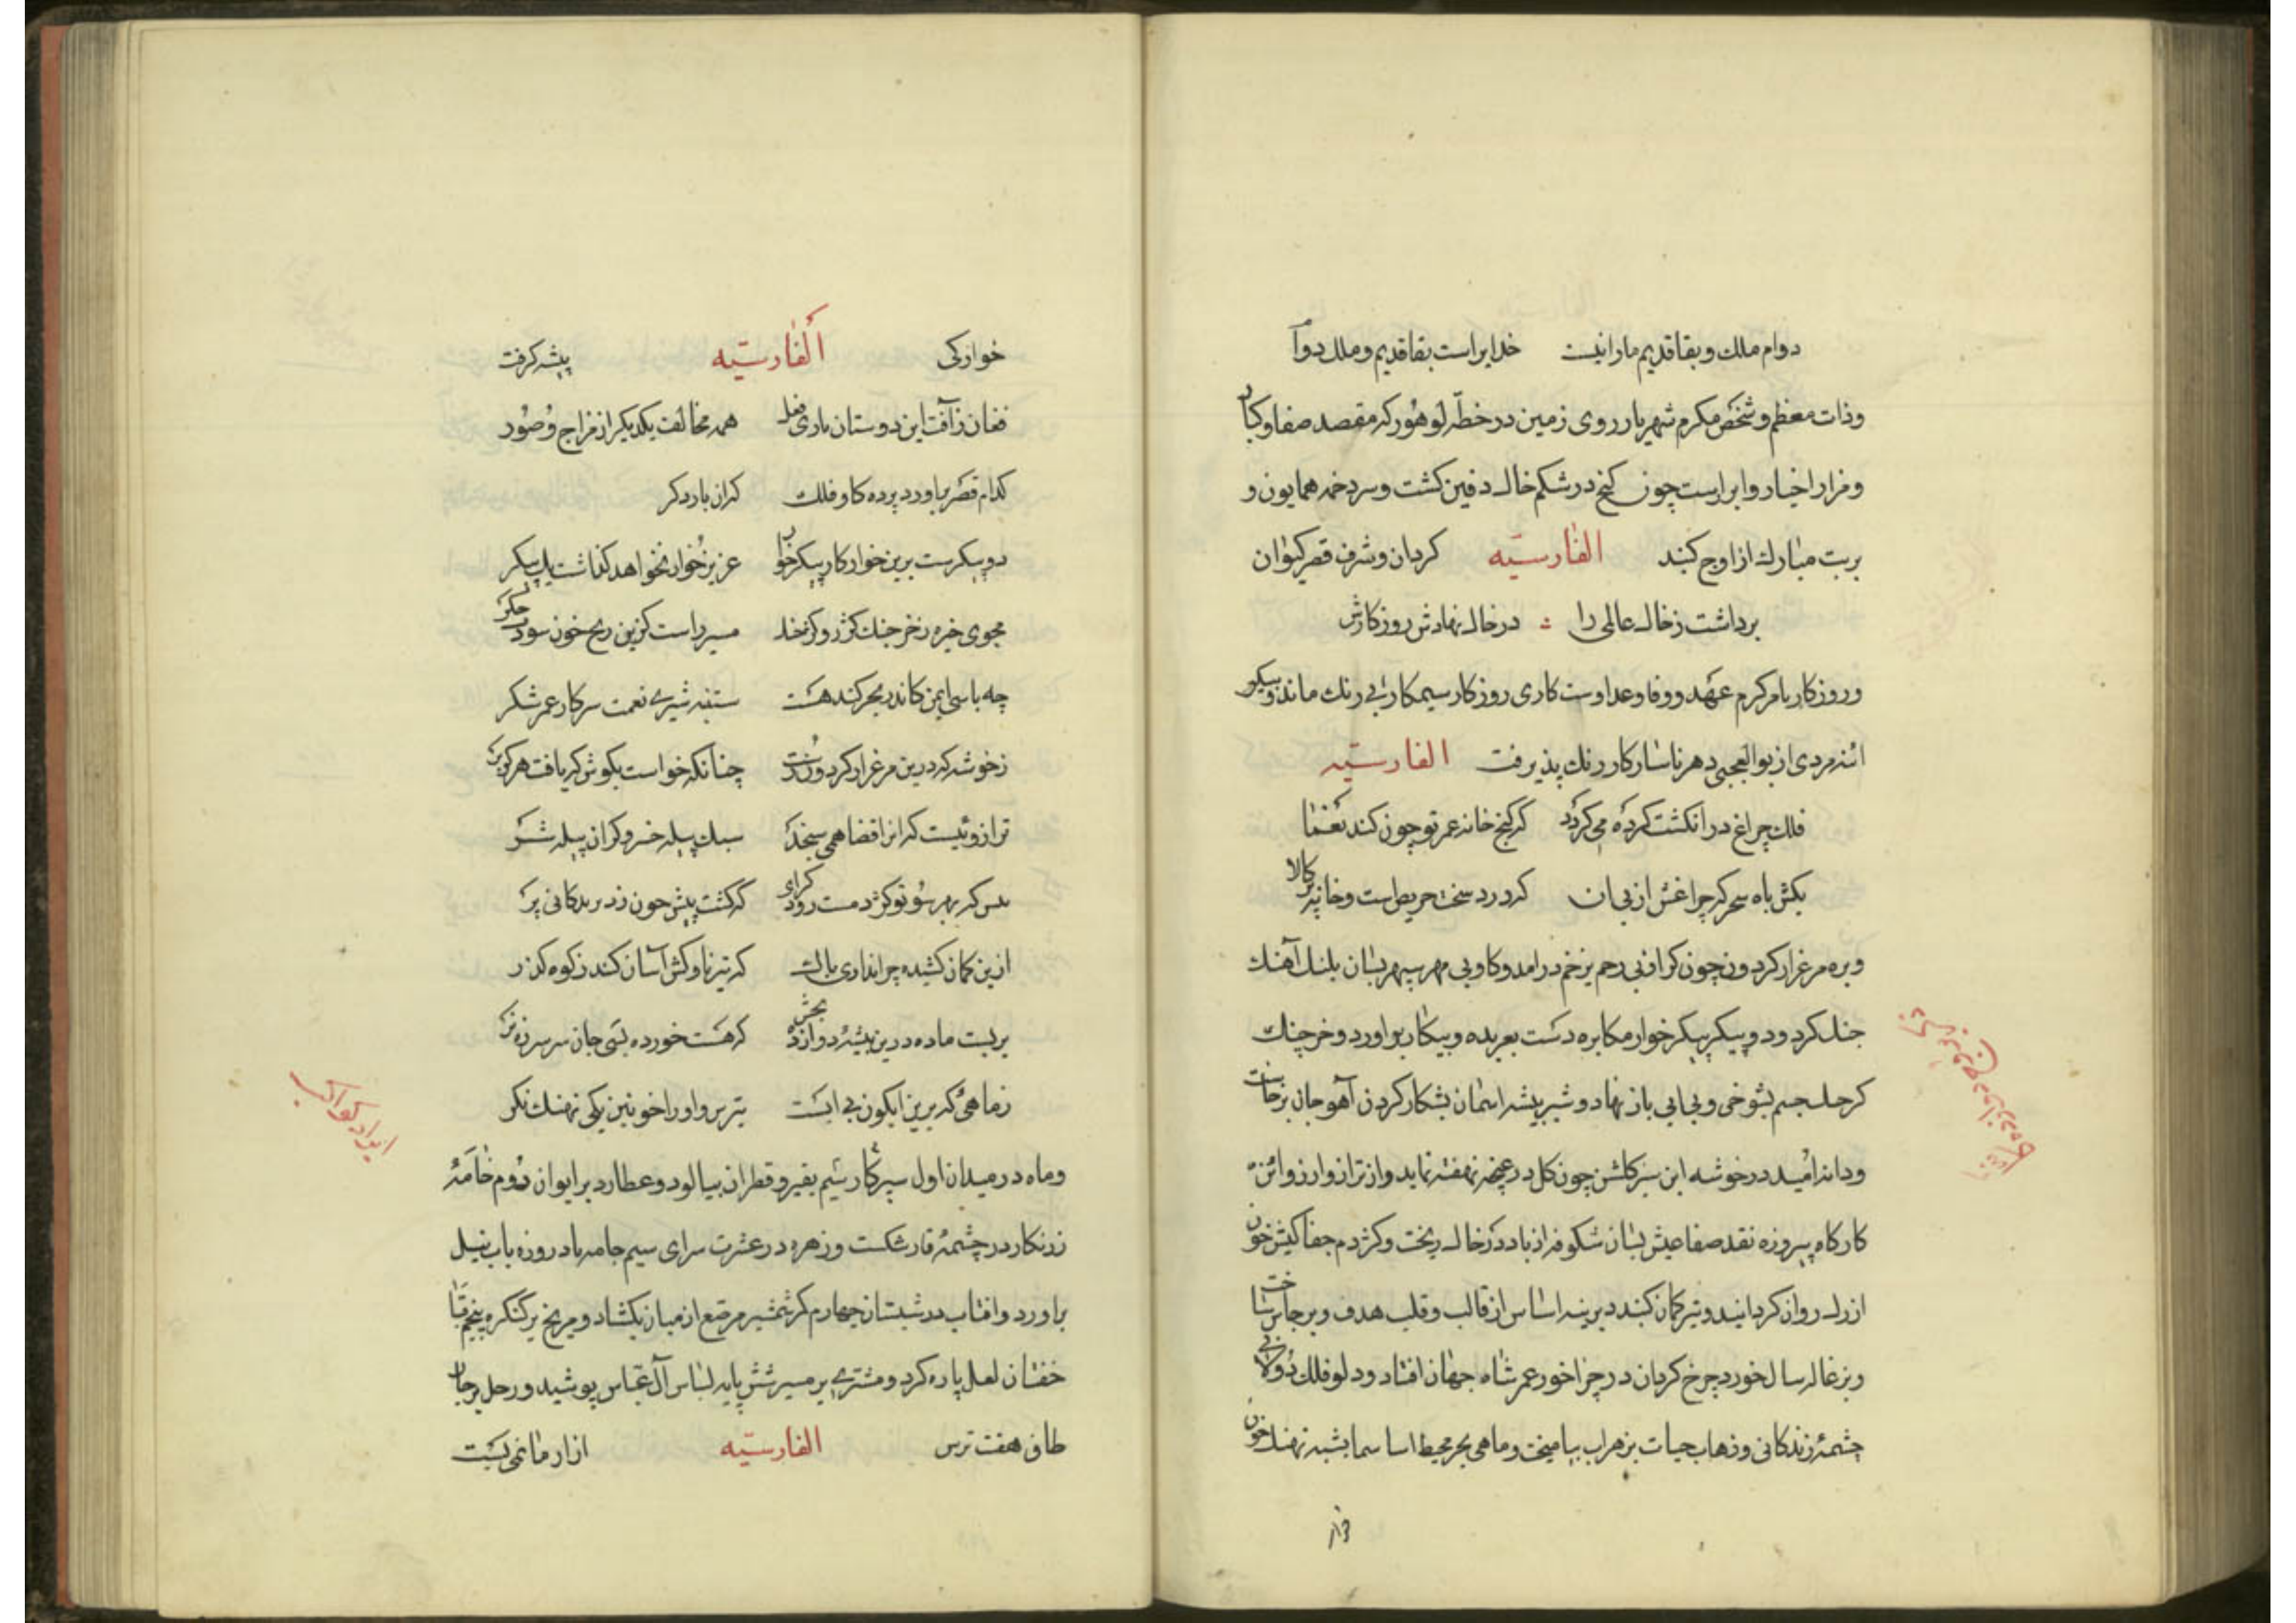 دوام ملك و بقا قدیم ما را نیست خدایراست بقا قدیم و ملك دوام
وذات معظم و شخص مکرم شهریار روی زمین در خطّه لوهور که مقصد صفا و کبار
و مزار اخیار و ابرارست چون کنج در شکم خاك دفین کشت و سردخمه همایون و
بربت مبارك از اوج کنبد الفارسیّه کردان و شرف قصر کیوان
برداشت ز خاك عالمی را در خاك نهادش روزکارش
و روزکار بامر کرم عهد و وفا و عداوت کاری روزکار سیمکار بی رنك ماند و پیکر
ائنه مردی از بوالعجبی دهر ناسازکار رنك پذیرفت الفارسیّه
فلك چراغ در انکشت کرده می کردد که کنج خانه عمر تو چون کند یغما
بکش باه سحرکه چراغش از پی ان که درد سخت حریص است و خانه پر کالا
وبره مرغزار کردون چون کرك فنی رحم بزخم درامد و کاو بی مهر سپهر بسان پلنك آهنك
جنك کرد و دو پیکر پیکرخوار مکابره دست بعربده و پیکار براورد و خرچنك
کرحك جسم بشوخی و بی ابی باز نهاد و شیر بیشه اسمان بشکار کردن آهو جان برخاست
ودانه امید در خوشه این سبز کلشن چون کل در غنچه نهفته نماید و از ترازو ارزوائن
کارکاه پیروزه نقد صفا عیش بسان شکوفه از باد در خاك ریخت و کژدم جفا کیش خون
ازرك روان کردانید و تیر کمان کنبد دیرینه اساس از قالب و قلب هدف و برجاس ساخت
وبزغاله سالخورد چرخ کردان در چراخور عمر شاه جهان افتاد و دلو فلك دولابی
چشمهٔ زندکانی و زهاب حیات بزهراب بیامیخت و ماهی بحر محیط اسا سما بشبه نهنك خون
خوارکی الفارسیّه پیشه کرفت
فغان ز آفت این دوستان باری فعل همه مخالف یکدیکر از مزاج و صور
کدام قصر براورد برده کاو فلك کران بار دکر
دو پیکرست برین خوار کار پیکرخوار عزیز خوار نخواهد کذاشت یك پیکر
مجوی خیره ز خرچنك کژرو کژخد مسیر راست کزین رنج خون سود جکر
چه باسی ایمن کاندر بحر کند هست ستنبه شیری نعمت سرکار عمر شکر
ز خوشه که درین مرغزار کردون رست چنانکه خواست بکوش که یافت هرکز بر
ترازوئیست که انرا قضا همی سنجد سبك پله خیر و کران پله شر
بس که بهر سو تو کژدمست رود کرای که کشت پیش چون زد بر بدکانی بر
ازین کمان کشیده چرا نداری باك که تیز ناوکش آسان کند ز کوه کذر
بریست ماده درین بیشهٔ دوازده بخش که هست خورده بسی جان سرسر نر
زماهئی که برین ابکون بی ابست بترس و او را خونین یکی نهنك نکر
وماه در میدان اول سپرکار سیم بقیر و قطران بیالود و عطارد بر ایوان دوم خامهٔ
زرنکار در چشمهٔ قار شکست و زهره در عشرت سرای سیم جامه باد روزه باب نیل
براورد و افتاب در شبستان چهارم کر شمشیر مرصع از میان بکشاد و مریخ بر کنکره پنجم قبا
خفتان لعل پاره کرد و مشتری بر مسیر شش پایه لباس آل عباس پوشید و زحل برجای
طاق هفت ترس الفارسیّه ازار ماتمی بست
ایراد کواکب